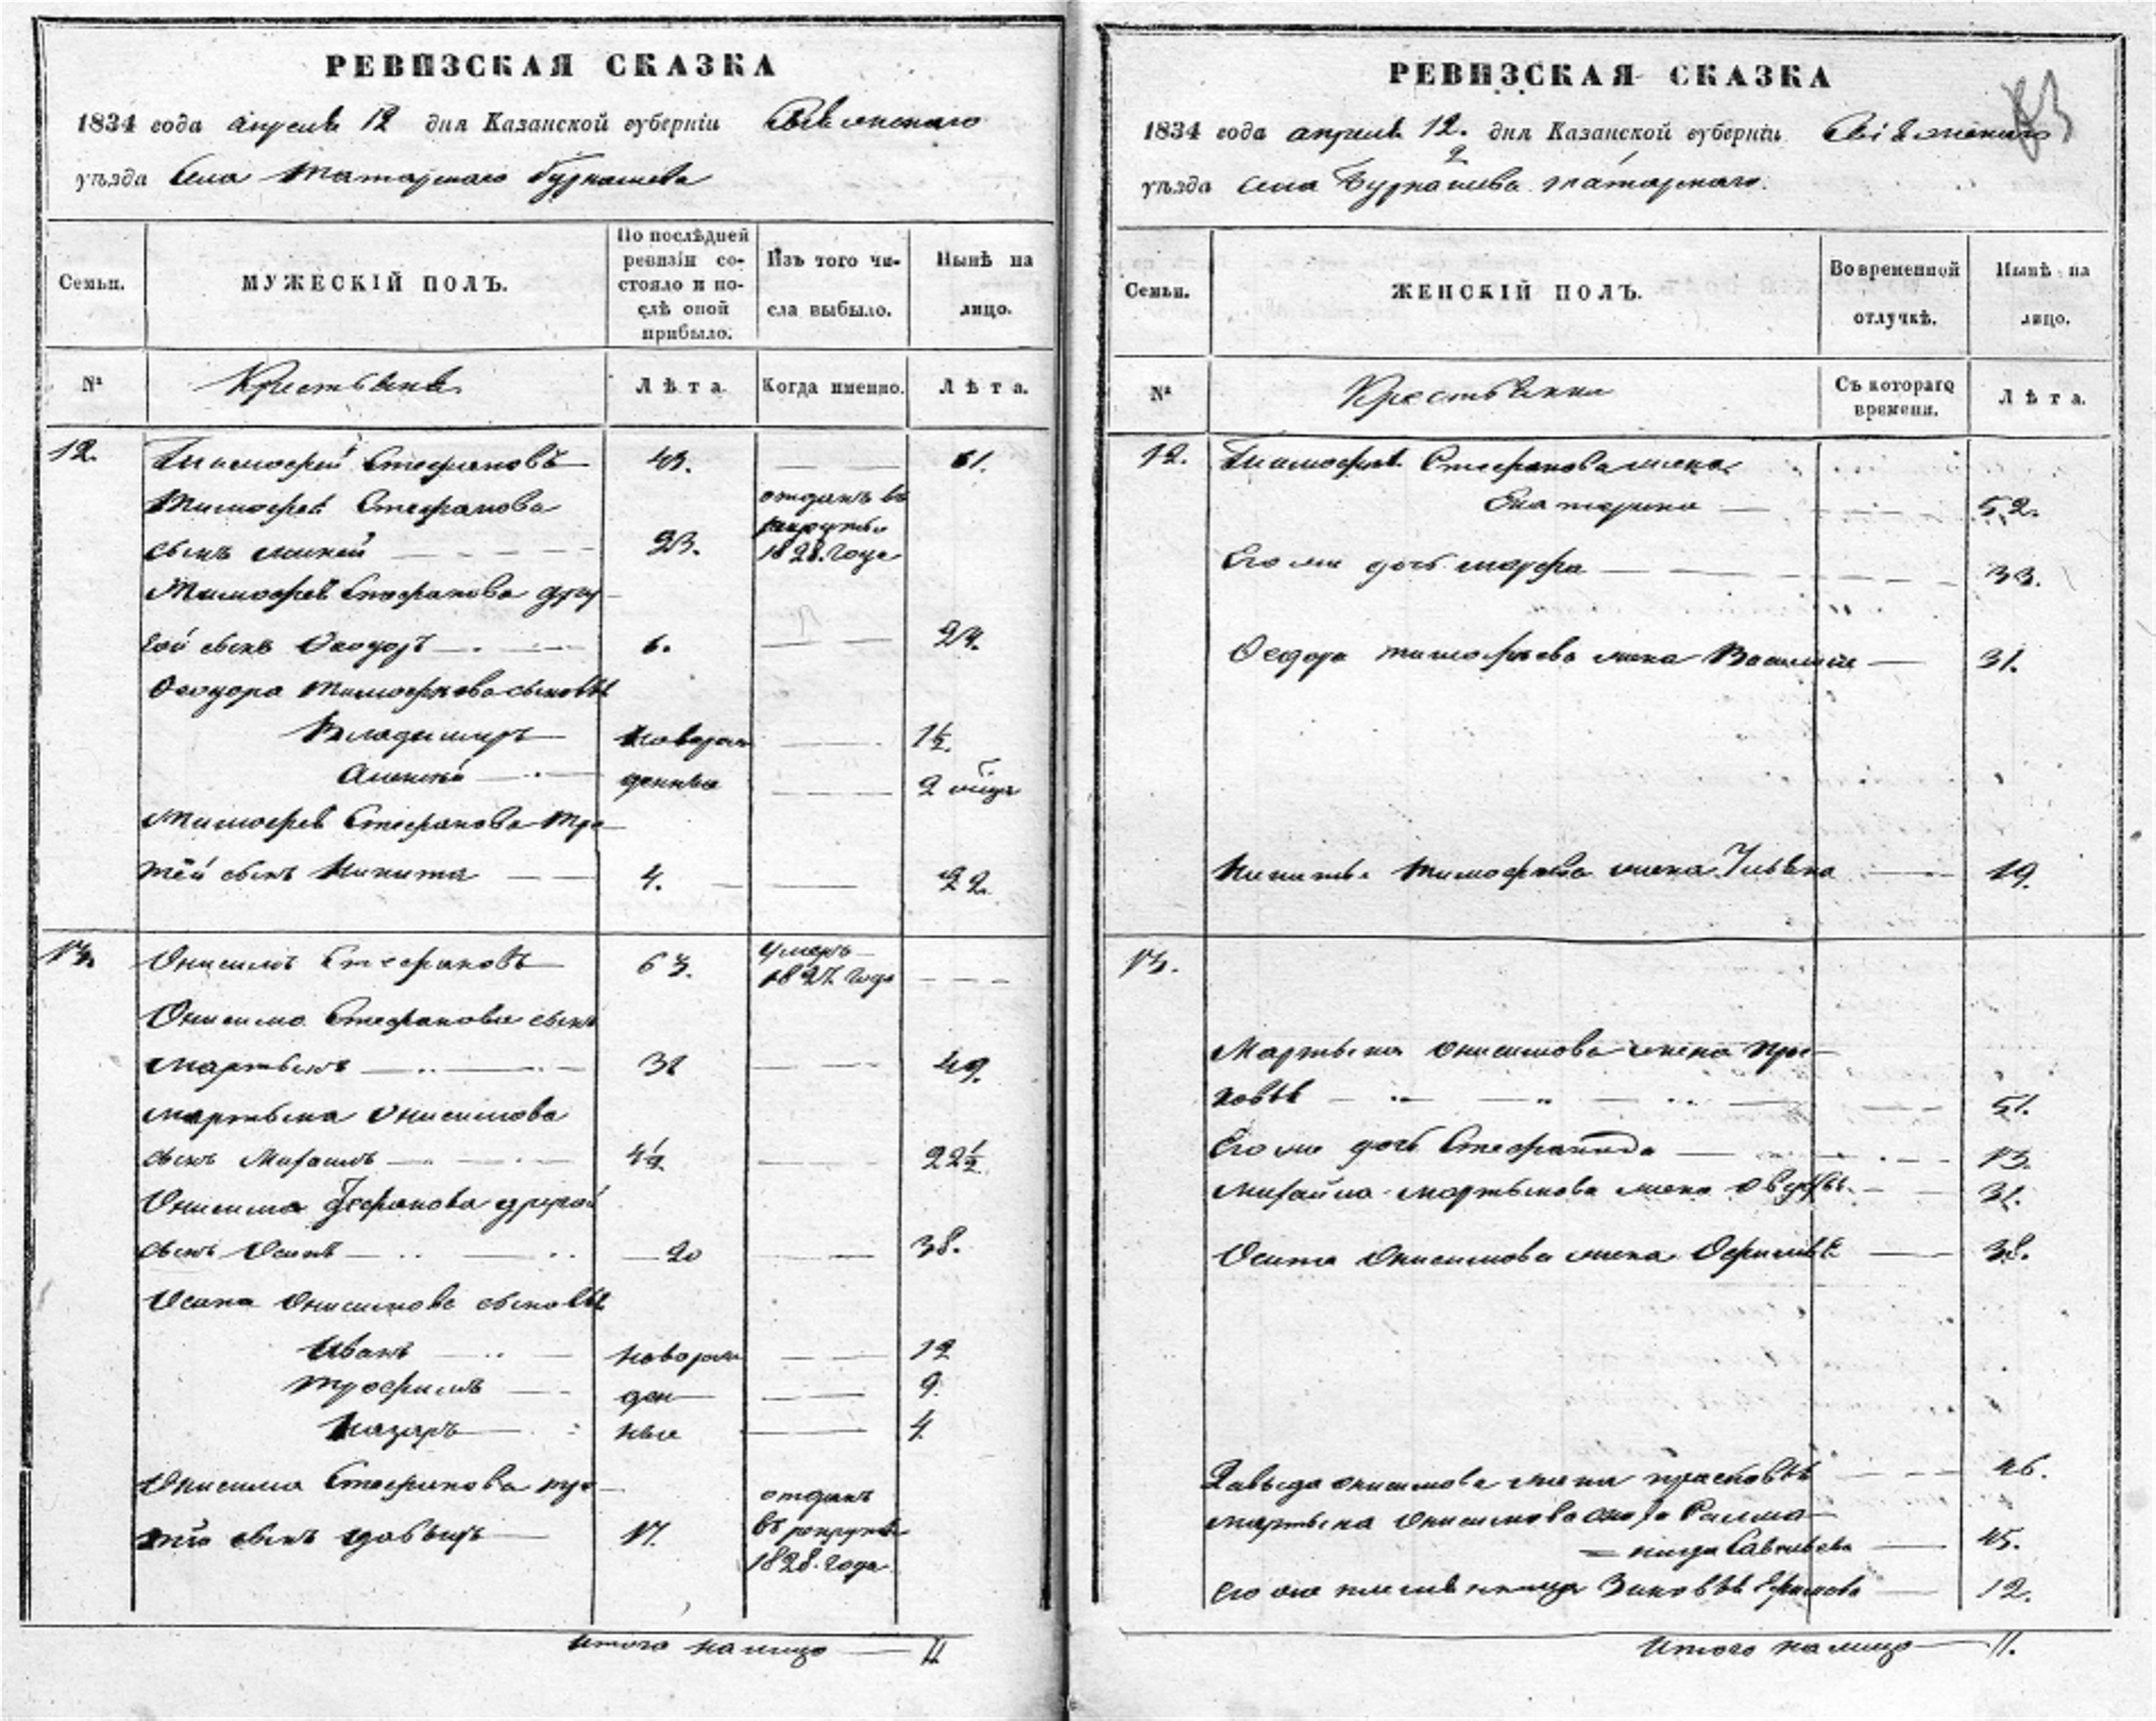 РЕВИЗСКАЯ СКАЗКА
1834 года апреля 12 дня Казанской губерніи Свіяжскаго
уѣзда села Татарскаго Бурнашева
Семьи.
МУЖЕСКІЙ ПОЛЪ.
По послѣдней
ревизіи со-
стояло и по-
слѣ оной
прибыло.
Изъ того чи-
сла выбыло.
Нынѣ на
лицо.
№ Крестьяне Лѣта. Когда именно. Лѣта.
12. Тимофей Стефановъ 43. 61.
Тимофея Стефанова отданъ въ
сынъ 23. рекруты
1828. года
Тимофея Стефанова дру-
гой сынъ Феодоръ 6. 24.
Феодора Тимофеева сыновья
Владимиръ новорож 1½
Алексѣй денные 2 мѣсца
Тимофея Стефанова тре-
тей сынъ Никита 4. 22.
13. Онисимъ Стефановъ 63. умеръ
1827. года
Онисима Стефанова сынъ
Мартынъ 31 49.
Мартына Онисимова
сынъ Михаилъ 4½ 22½
Онисима Стефанова другой
сынъ Осипъ 20 38.
Осипа Онисимова сыновья
Иванъ новорож 12
Трофимъ ден 9.
Назаръ ные 4
Онисима Стефанова тре-
тій сынъ Давыдъ 17. отданъ
въ рекруты
1828. года
Итого на лицо 11.
РЕВИЗСКАЯ СКАЗКА
1834 года апреля 12. дня Казанской губерніи Свіяжскаго
уѣзда села Бурнашева татарскаго.
Семьи.
ЖЕНСКІЙ ПОЛЪ.
Во временной
отлучкѣ.
Нынѣ на
лицо.
№ Крестьянки Съ котораго
времени. Лѣта.
12. Тимофея Стефанова жена
Екатерина 52.
Его же дочь Марфа 33.
Федора Тимофеева жена Василиса 31.
Никиты Тимофеева жена Ульяна 19.
13.
Мартына Онисимова жена Прас-
ковья 51.
Его же дочь Стефанида 13.
Михайла Мартынова жена Авдотья 31.
Осипа Онисимова жена 38.
Давыда Онисимова жена Прасковья 46.
Мартына Онисимова
Савельева 45.
Его же племянница Зиновья 12.
Итого на лицо 11.